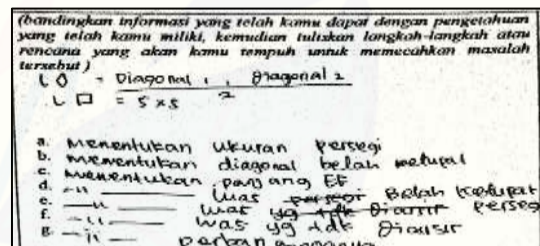 (bandingkan informasi yang telah kamu dapat dengan pengetahuan
yang telah kamu miliki, kemudian tuliskan langkah-langkah atau
rencana yang akan kamu tempuh untuk memecahkan masalah
tersebut)
L ◊ = Diagonal 1 . diagonal 2
2
L □ = s x s
a. Menentukan ukuran persegi
b. Menentukan diagonal belah ketupat
c. Menentukan panjang EF
d. –"– luas persegi Belah ketupat
e. –"– luas yg tdk diarsir persegi
f. –"– luas yg tdk diarsir
g. –"–